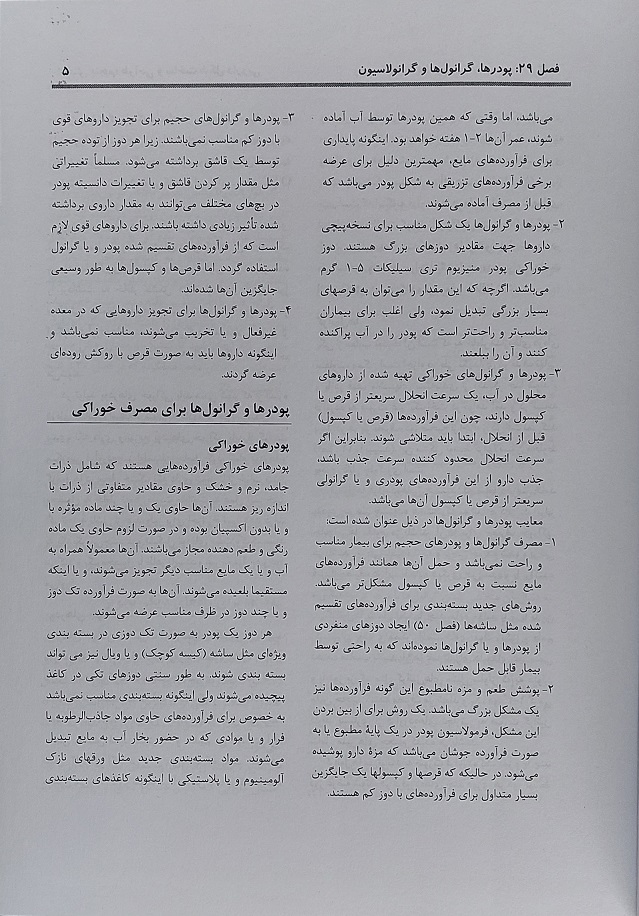 فصل ۲۹: پودرها، گرانول‌ها و گرانولاسیون
۵
می‌باشد، اما وقتی که همین پودرها توسط آب آماده
شوند، عمر آن‌ها ۲-۱ هفته خواهد بود. اینگونه پایداری
برای فرآورده‌های مایع، مهمترین دلیل برای عرضه
برخی فرآورده‌های تزریقی به شکل پودر می‌باشد که
قبل از مصرف آماده می‌شوند.
۲- پودرها و گرانول‌ها یک شکل مناسب برای نسخه‌پیچی
داروها جهت مقادیر دوزهای بزرگ هستند. دوز
خوراکی پودر منیزیوم تری سیلیکات ۵-۱ گرم
می‌باشد. اگرچه که این مقدار را می‌توان به قرصهای
بسیار بزرگی تبدیل نمود، ولی اغلب برای بیماران
مناسب‌تر و راحت‌تر است که پودر را در آب پراکنده
کنند و آن را ببلعند.
۳- پودرها و گرانول‌های خوراکی تهیه شده از داروهای
محلول در آب، یک سرعت انحلال سریعتر از قرص یا
کپسول دارند، چون این فرآورده‌ها (قرص یا کپسول)
قبل از انحلال، ابتدا باید متلاشی شوند. بنابراین اگر
سرعت انحلال محدود کننده سرعت جذب باشد،
جذب دارو از این فرآورده‌های پودری و یا گرانولی
سریعتر از قرص یا کپسول آن‌ها می‌باشد.
معایب پودرها و گرانول‌ها در ذیل عنوان شده است:
۱- مصرف گرانول‌ها و پودرهای حجیم برای بیمار مناسب
و راحت نمی‌باشد و حمل آن‌ها همانند فرآورده‌های
مایع نسبت به قرص یا کپسول مشکل‌تر می‌باشد.
روش‌های جدید بسته‌بندی برای فرآورده‌های تقسیم
شده مثل ساشه‌ها (فصل ۵۰) ایجاد دوزهای منفردی
از پودرها و یا گرانول‌ها نموده‌اند که به راحتی توسط
بیمار قابل حمل هستند.
۲- پوشش طعم و مزه نامطبوع این گونه فرآورده‌ها نیز
یک مشکل بزرگ می‌باشد. یک روش برای از بین بردن
این مشکل، فرمولاسیون پودر در یک پایهٔ مطبوع یا به
صورت فرآورده جوشان می‌باشد که مزهٔ دارو پوشیده
می‌شود. در حالیکه که قرصها و کپسولها یک جایگزین
بسیار متداول برای فرآورده‌های با دوز کم هستند.
۳- پودرها و گرانول‌های حجیم برای تجویز داروهای قوی
با دوز کم مناسب نمی‌باشند. زیرا هر دوز از توده حجیم
توسط یک قاشق برداشته می‌شود. مسلماً تغییراتی
مثل مقدار پر کردن قاشق و یا تغییرات دانسیته پودر
در بچ‌های مختلف می‌توانند به مقدار داروی برداشته
شده تأثیر زیادی داشته باشند. برای داروهای قوی لازم
است که از فرآورده‌های تقسیم شده پودر و یا گرانول
استفاده گردد. اما قرص‌ها و کپسول‌ها به طور وسیعی
جایگزین آن‌ها شده‌اند.
۴- پودرها و گرانول‌ها برای تجویز داروهایی که در معده
غیرفعال و یا تخریب می‌شوند، مناسب نمی‌باشد و
اینگونه داروها باید به صورت قرص با روکش روده‌ای
عرضه گردند.
پودرها و گرانول‌ها برای مصرف خوراکی
پودرهای خوراکی
پودرهای خوراکی فرآورده‌هایی هستند که شامل ذرات
جامد، نرم و خشک و حاوی مقادیر متفاوتی از ذرات با
اندازه ریز هستند. آن‌ها حاوی یک و یا چند ماده مؤثره با
و یا بدون اکسپیان بوده و در صورت لزوم حاوی یک ماده
رنگی و طعم دهنده مجاز می‌باشند. آن‌ها معمولاً همراه به
آب و یا یک مایع مناسب دیگر تجویز می‌شوند، و یا اینکه
مستقیما بلعیده می‌شوند. آن‌ها به صورت فرآورده تک دوز
و یا چند دوز در ظرف مناسب عرضه می‌شوند.
هر دوز یک پودر به صورت تک دوزی در بسته بندی
ویژه‌ای مثل ساشه (کیسه کوچک) و یا ویال نیز می تواند
بسته بندی شوند. به طور سنتی دوزهای تکی در کاغذ
پیچیده می‌شوند ولی اینگونه بسته‌بندی مناسب نمی‌باشد
به خصوص برای فرآورده‌های حاوی مواد جاذب‌الرطوبه یا
فرار و یا موادی که در حضور بخار آب به مایع تبدیل
می‌شوند. مواد بسته‌بندی جدید مثل ورقهای نازک
آلومینیوم و یا پلاستیکی با اینگونه کاغذهای بسته‌بندی